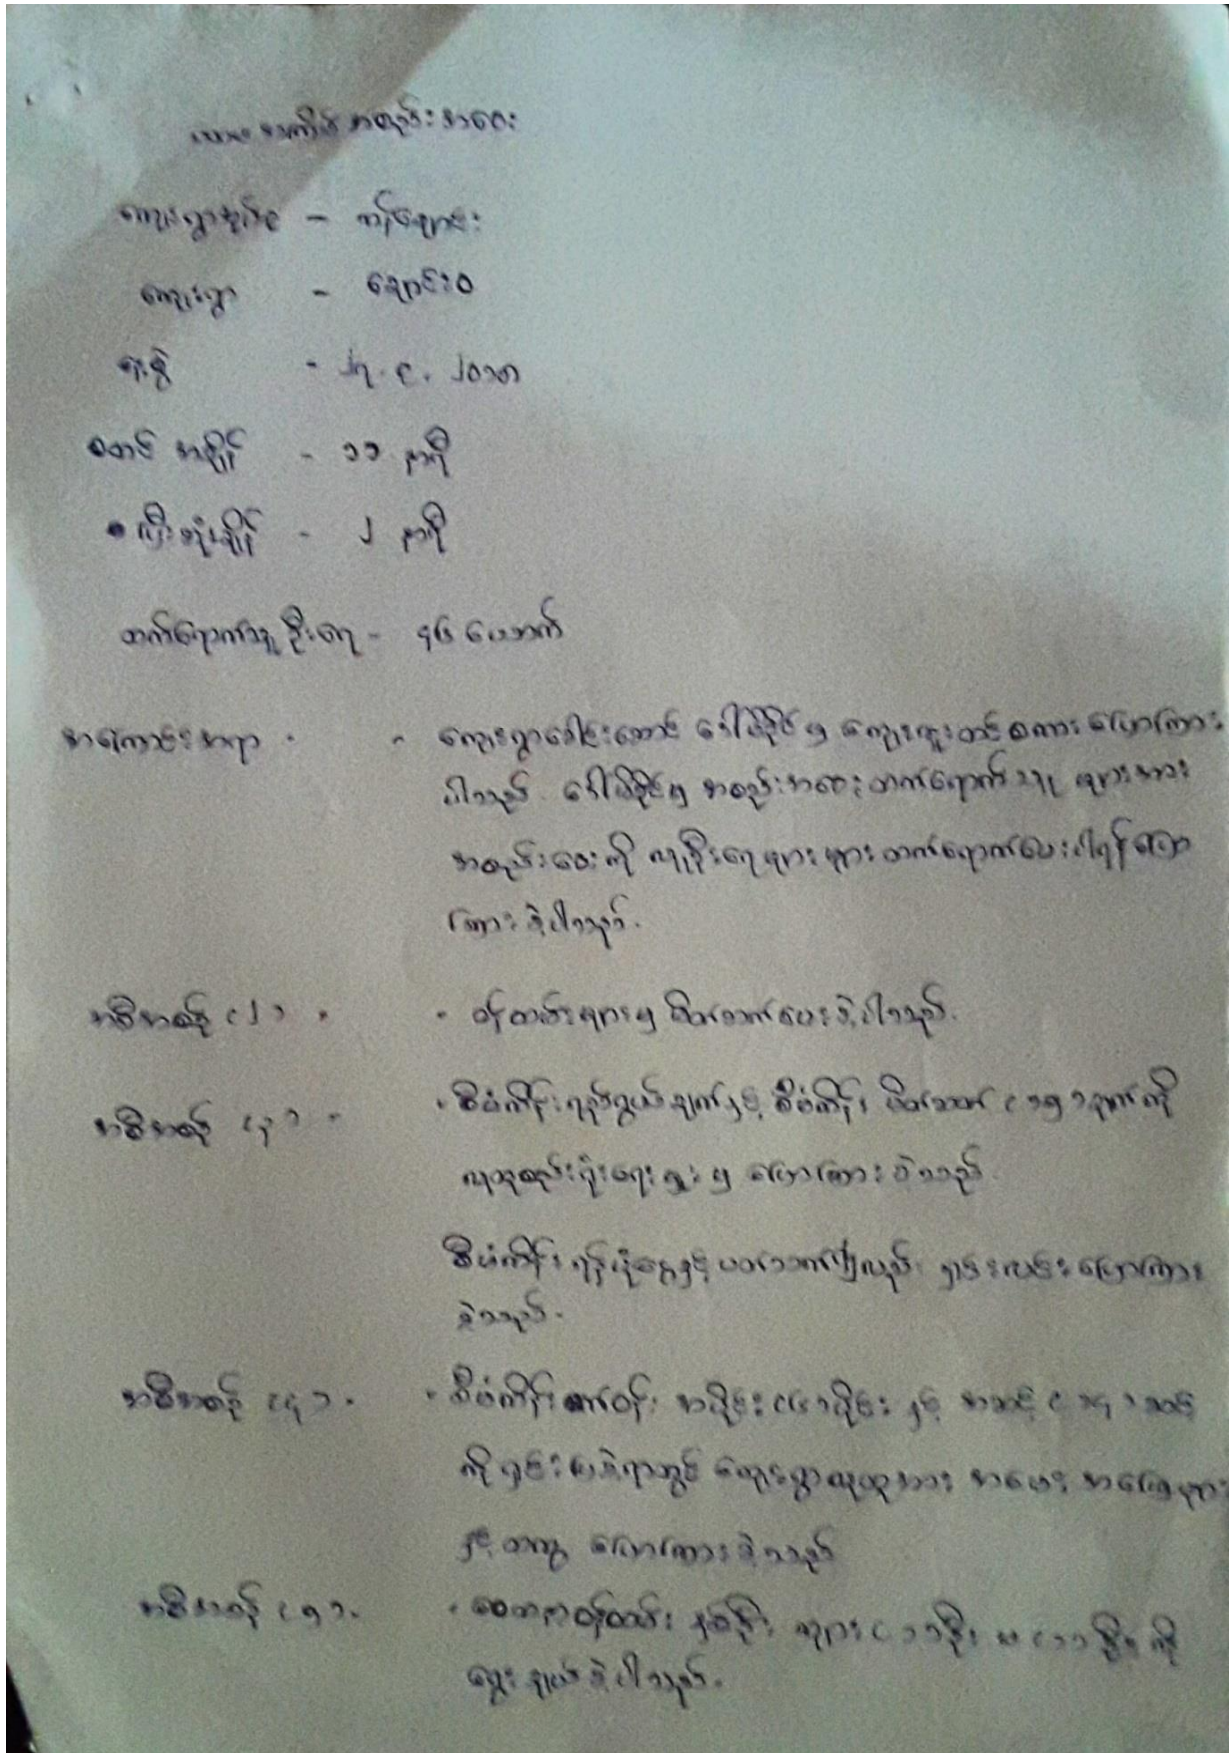 ပထမအကြိမ် အစည်းအဝေး
ကျေးရွာအုပ်စု -
ကျေးရွာ - ချောင်းဝ
နေ့စွဲ - ၂၇.၄.၂၀၁၈
စတင် အချိန် - ၁၁ နာရီ
ပြီးဆုံးချိန် - ၂ နာရီ
တက်ရောက်သူ ဦးရေ - ၄၆ ယောက်
အကြောင်းအရာ - - ကျေးရွာခေါင်းဆောင် ဒေါ် မှ ကျေးဇူးတင် စကား ပြောကြား
ပါသည်. ဒေါ် မှ အစည်းအဝေး တက်ရောက် သူ များအား
အစည်းဝေး ကို လူဦးရေ များများ တက်ရောက်ပေးပါရန် ပြော
ကြား ခဲ့ပါသည်.
အစီအစဉ် (၂) - - ဝန်ထမ်းများမှ မိတ်ဆက်ပေးခဲ့ပါသည်.
အစီအစဉ် (၃) - - စီမံကိန်း ရည်ရွယ်ချက်နှင့် စီမံကိန်း မိတ်ဆက် (၁၅) ချက် ကို
လူထုစည်းရုံးရေးမှူး မှ ပြောကြား ခဲ့သည်.
စီမံကိန်း ရန်ပုံငွေနှင့် ပတ်သက်၍လည်း ရှင်းလင်း ပြောကြား
ခဲ့သည်.
အစီအစဉ် (၄) - - စီမံကိန်း စက်ဝန်း အပိုင်း (၆) ပိုင်း နှင့် အဆင့် (၁၄) ဆင့်
ကို ရှင်းပြခဲ့ရာတွင် ကျေးရွာလူထုအား အမေး အဖြေများ
နှင့် တကွ ပြောကြား ခဲ့သည်
အစီအစဉ် (၅) - - စေတနာ့ဝန်ထမ်း နှစ်ဦး ကျား (၁) ဦး မ (၁) ဦး ကို
ရွေးချယ် ခဲ့ပါသည်.